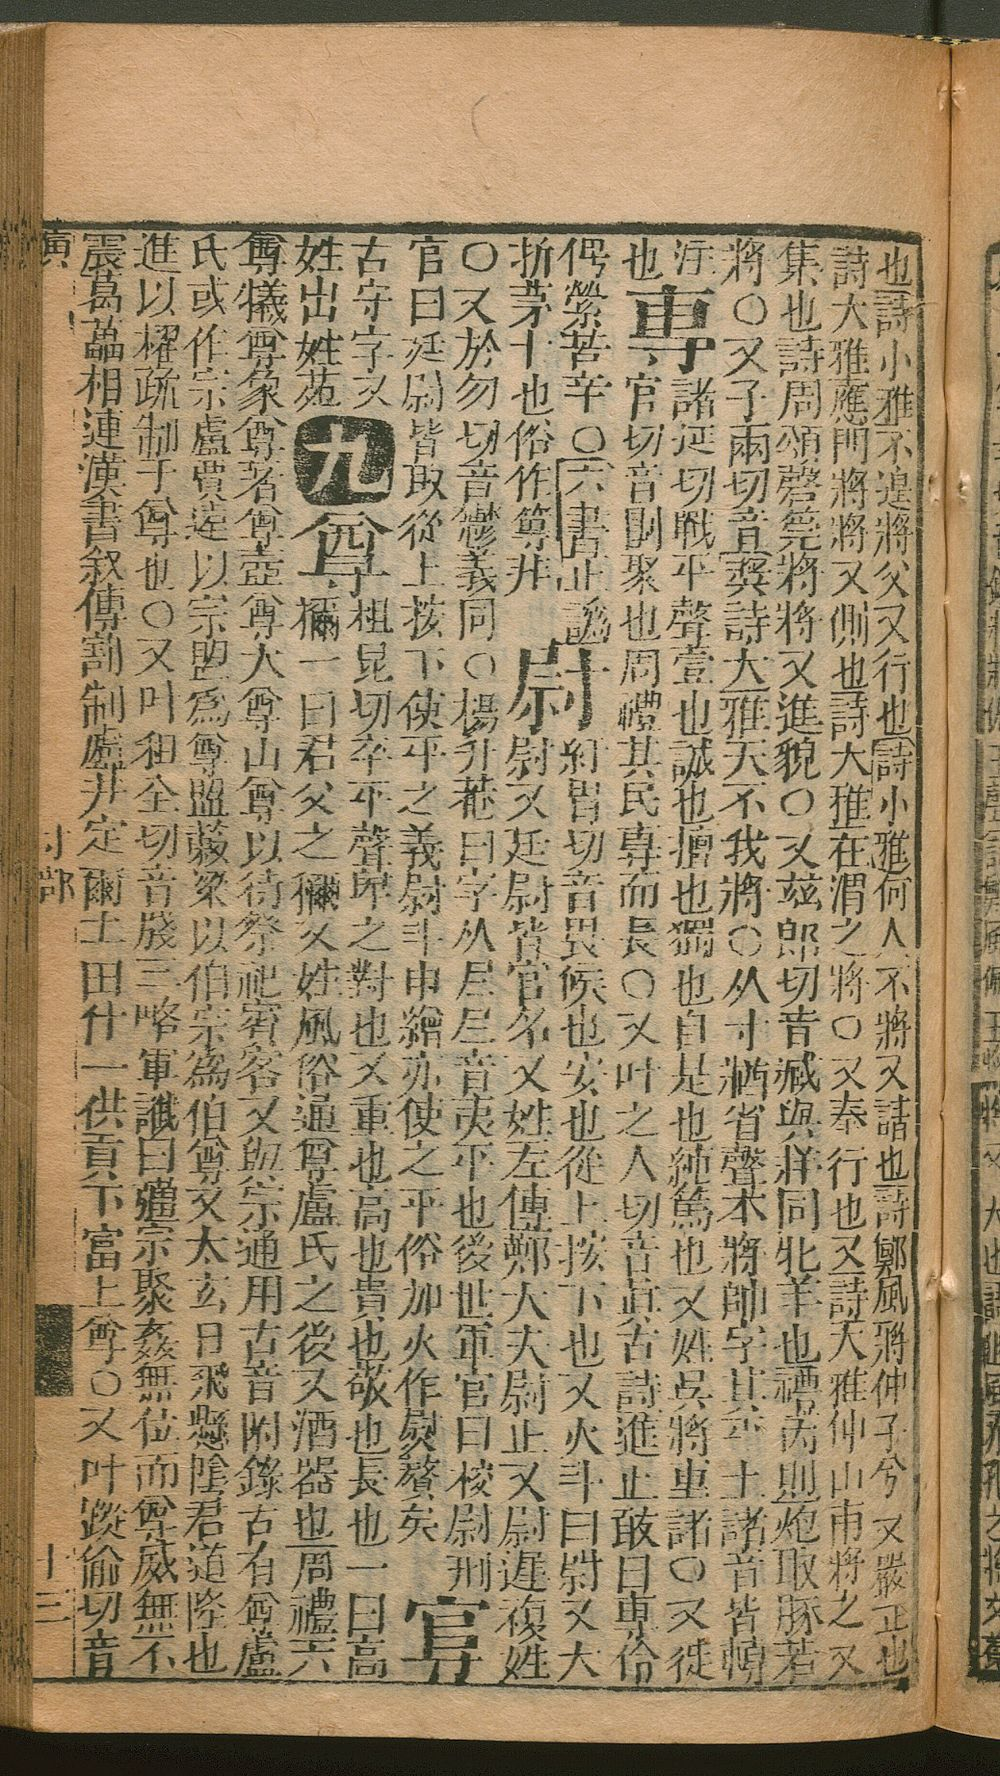 也詩小雅不遑將父又行也詩小雅何人不將又話也詩鄭風將仲子兮又嚴正也
詩大雅應門將將又側也詩大雅在渭之將〇又奉行也又詩大雅仲山甫將之又
集也詩周頌磬筦將將又進貌〇又兹郎切音臧與牂同牝羊也禮内則炮取豚若
將〇又子兩切音獎詩大雅天不我將〇从寸牆省聲本將帥字其平上諸音皆轉
注 諸延切戰平聲壹也誠也擅也獨也自是也純篤也又姓吳將專諸〇又徒
也專官切音團聚也周禮其民專而長〇又叶之人切音眞古詩進止敢日專伶
俜縈苦辛〇六書正譌 紆胃切音畏候也安也從上按下也又火斗曰尉又大
折莩十也俗作篿非尉尉又廷尉皆官名又姓左傳鄭大夫尉止又尉遲複姓
〇又於勿切音鬱義同〇楊升菴曰字从𡰥𡰥音夷平也後世軍官曰校尉刑
官曰廷尉皆取從上按下使平之義尉斗申繒亦使之平俗加火作熨贅矣
古守字又 祖昆切卒平聲𤰞之對也又重也高也貴也敬也長也一曰高
姓出姓苑九尊稱一曰君父之稱又姓風俗通尊盧氏之後又酒器也周禮六
尊犧尊象尊著尊壺尊大尊山尊以待祭祀賓客又與宗通用古音附錄古有尊盧
氏或作宗盧賈逵以宗盟爲尊盟榖梁以伯宗爲伯尊又太玄日飛懸陰君道隆也
進以欋疏制于尊也〇又叶租全切音牋三略軍讖曰彊宗聚姦無位而尊威無不
震葛藟相連漢書叙傳割制廬井定爾土田什一供貢下富上尊〇又叶蹤倫切音
寅 寸部 十三